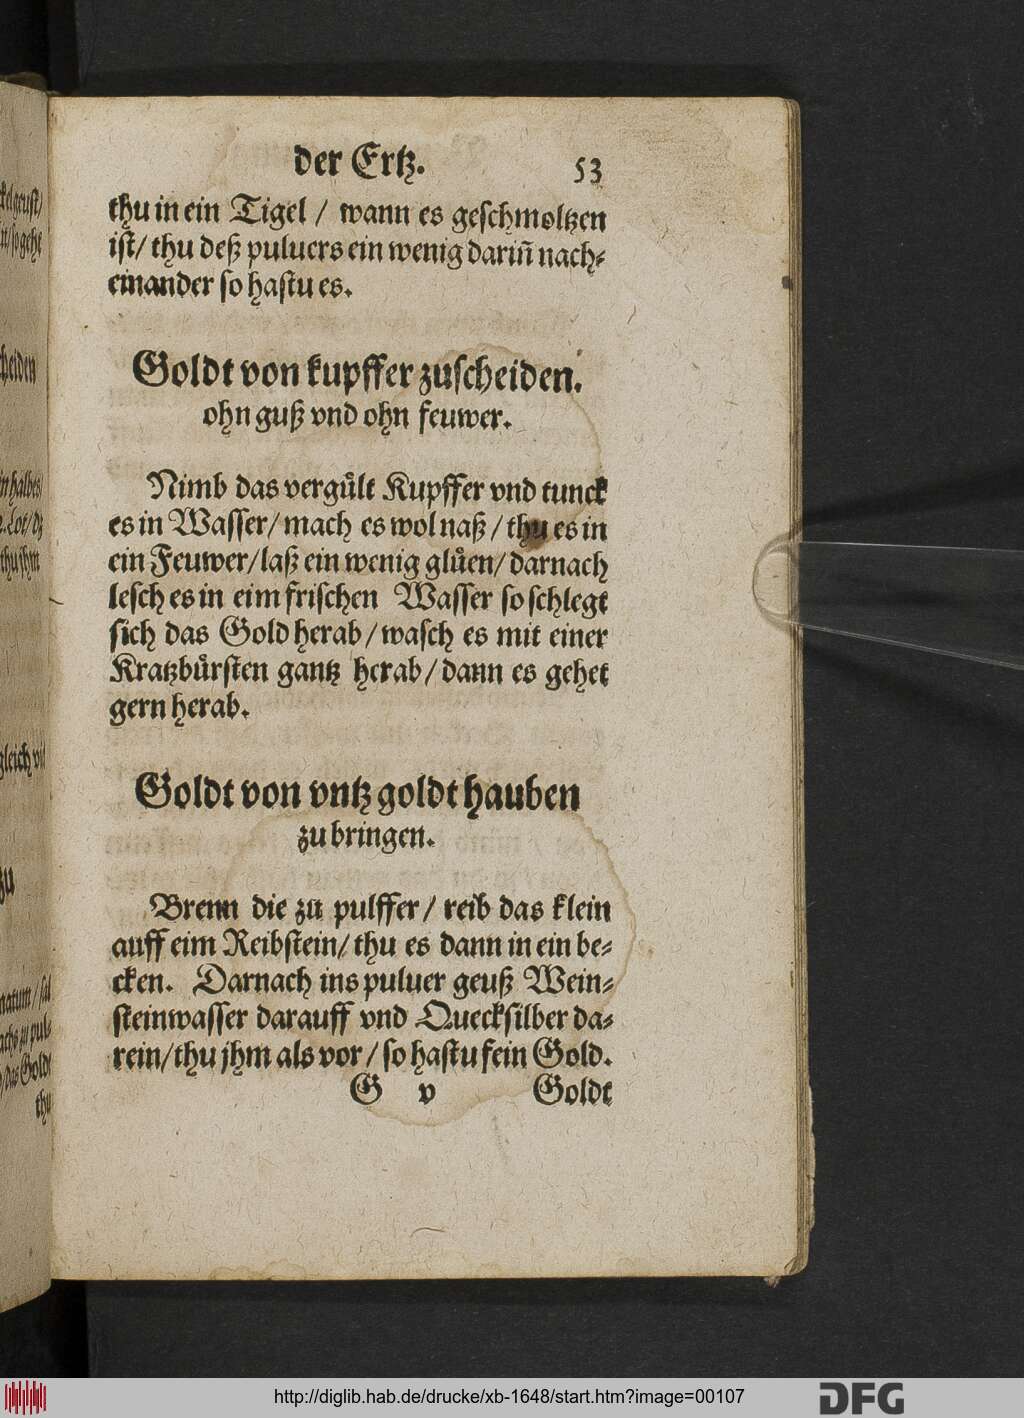 der Ertz. 53
thu in ein Tigel / wann es geschmoltzen
ist / thu deß puluers ein wenig dariñ nach-
einander so hastu es.
Goldt von kupffer zuscheiden.
ohn guß vnd ohn feuwer.
Nimb das vergůlt Kupffer vnd tunck
es in Wasser / mach es wol naß / thu es in
ein Feuwer / laß ein wenig glůen / darnach
lesch es in eim frischen Wasser so schlegt
sich das Gold herab / wasch es mit einer
Kratzbůrsten gantz herab / dann es gehet
gern herab.
Goldt von vntz goldt hauben
zu bringen.
Brenn die zu pulffer / reib das klein
auff eim Reibstein / thu es dann in ein be-
cken. Darnach ins puluer geuß Wein-
steinwasser darauff vnd Quecksilber da-
rein / thu jhm als vor / so hastu fein Gold.
G v Goldt
http://diglib.hab.de/drucke/xb-1648/start.htm?image=00107
DFG